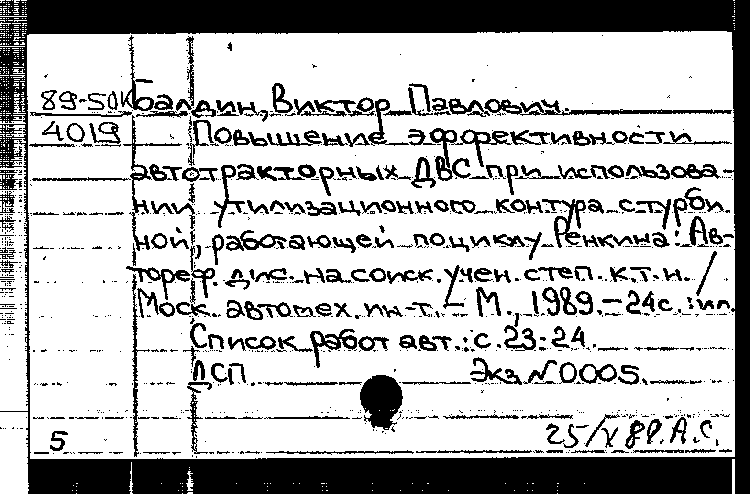 89-50К Балдин, Виктор Павлович.
4019 Повышение эффективности
автотракторных ДВС при использова-
нии утилизационного контура с турби
ной, работающей по циклу Ренкина: Ав-
тореф. дис. на соиск. учен. степ. к.т.н. /
Моск. автомех. ин-т. – М., 1989. – 24с. : ил.
Список работ авт.: с. 23-24.
ДСП. Экз. N 0005.
5 25/V 89. А.С.